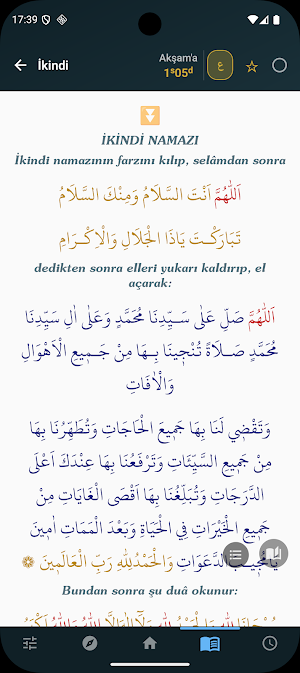 17:39
İkindi
Akşam'a
1ˢ05ᵈ
ع
İKİNDİ NAMAZI
İkindi namazının farzını kılıp, selâmdan sonra
اَللّٰهُمَّ اَنْتَ السَّلَامُ وَمِنْكَ السَّلَامُ
تَبَارَكْتَ يَاذَا الْجَلَالِ وَالْاِكْرَامِ
dedikten sonra elleri yukarı kaldırıp, el
açarak:
اَللّٰهُمَّ صَلِّ عَلٰى سَيِّدِنَا مُحَمَّدٍ وَعَلٰى اٰلِ سَيِّدِنَا
مُحَمَّدٍ صَلَاةً تُنْجِينَا بِهَا مِنْ جَمِيعِ الْاَهْوَالِ
وَالْاٰفَاتِ
وَتَقْضِي لَنَا بِهَا جَمِيعَ الْحَاجَاتِ وَتُطَهِّرُنَا بِهَا
مِنْ جَمِيعِ السَّيِّئَاتِ وَتَرْفَعُنَا بِهَا عِنْدَكَ اَعْلَى
الدَّرَجَاتِ وَتُبَلِّغُنَا بِهَا اَقْصَى الْغَايَاتِ مِنْ
جَمِيعِ الْخَيْرَاتِ فِي الْحَيَاةِ وَبَعْدَ الْمَمَاتِ اٰمِينَ
يَا مُجِيبَ الدَّعَوَاتِ وَالْحَمْدُ لِلّٰهِ رَبِّ الْعَالَمِينَ
Bundan sonra şu duâ okunur: